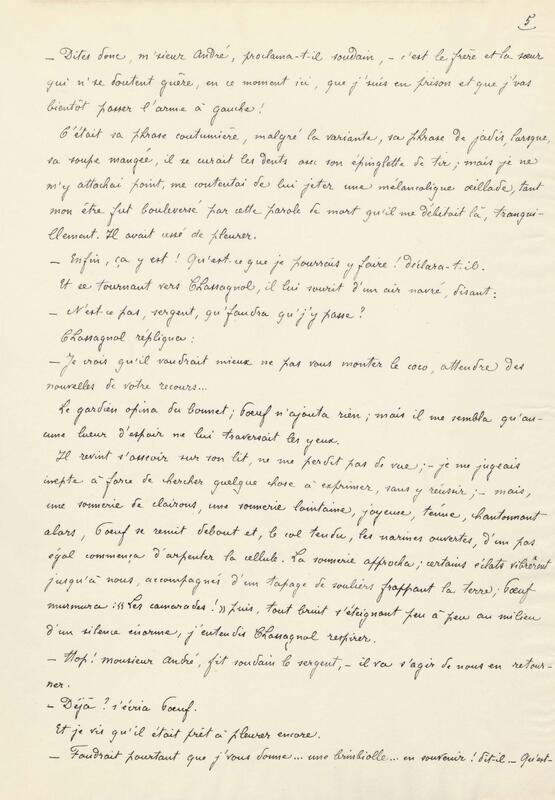 5
— Dites donc, m'sieur André, proclama-t-il soudain, — c'est le frère et la sœur
qui n'se doutent guère, en ce moment ici, que j'suis en prison et que j'vas
bientôt passer l'arme à gauche !
C'était sa phrase coutumière, malgré la variante, sa phrase de jadis, lorsque,
sa soupe mangée, il se curait les dents avec son épinglette de tir ; mais je ne
m'y attachai point, me contentai de lui jeter une mélancolique œillade, tant
mon être fut bouleversé par cette parole de mort qu'il me débitait là, tranqui-
llement. Il avait cessé de pleurer.
— Enfin, ça y est ! Qu'est-ce que je pourrais y faire ! déclara-t-il.
Et se tournant vers Chassagnol, il lui sourit d'un air navré, disant :
— N'est-ce pas, sergent, qu'faudra qu'j'y passe ?
Chassagnol répliqua :
— Je crois qu'il vaudrait mieux ne pas vous monter le coco, attendre des
nouvelles de votre recours...
Le gardien opina du bonnet ; Bœuf n'ajouta rien ; mais il me sembla qu'au-
cune lueur d'espoir ne lui traversait les yeux.
Il revint s'asseoir sur son lit, ne me perdit pas de vue ; — je me jugeais
inepte à force de chercher quelque chose à exprimer, sans y réussir ; — mais,
une sonnerie de clairons, une sonnerie lointaine, joyeuse, ténue, chantonnant
alors, Bœuf se remit debout et, le col tendu, les narines ouvertes, d'un pas
égal commença d'arpenter la cellule. La sonnerie approcha ; certains éclats vibrèrent
jusqu'à nous, accompagnés d'un tapage de souliers frappant la terre ; Bœuf
murmura : « Les camarades ! » puis, tout bruit s'éteignant peu à peu au milieu
d'un silence énorme, j'entendis Chassagnol respirer.
— Hop ! monsieur André, fit soudain le sergent, — il va s'agir de nous en retour-
ner.
— Déjà ? s'écria Bœuf.
Et je vis qu'il était prêt à pleurer encore.
— Faudrait pourtant que j'vous donne... une brimbiolle... en souvenir ! dit-il — Qu'est-